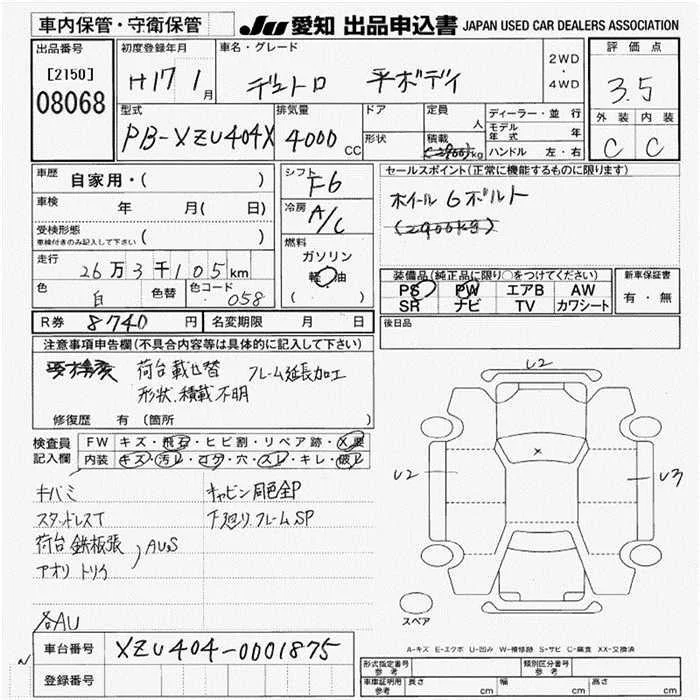 車内保管・守衛保管
JU 愛知 出品申込書 JAPAN USED CAR DEALERS ASSOCIATION
出品番号
[2150]
08068
初度登録年月
H17 1月
車名・グレード
デュトロ 平ボディ
2WD・4WD
評価点
3.5
外装 内装
C C
型式
PB-XZU404X
排気量
4000cc
ドア
形状
定員 人
積載 (2900)kg
ディーラー・並行
モデル年式 年
ハンドル 左・右
車歴
自家用・( )
車検 年 月( 日)
受検形態 ( )
車検付きのみ記入して下さい
走行
26万3千105km
色
白
色替
色コード
058
シフト
F6
冷房
A/C
燃料
ガソリン
軽油
( )
セールスポイント(正常に機能するものに限ります)
ホイール 6ボルト
(2900kg)
装備品(純正品に限り○をつけてください)
PS PW エアB AW
SR ナビ TV カワシート
新車保証書
有・無
R券 8740円
名変期限 月 日
後日品
注意事項申告欄(不具合内容等は具体的に記入して下さい)
荷台載せ替 フレーム延長加工
形状、積載不明
修復歴 有(箇所 )
検査員記入欄
FW キズ・飛石・ヒビ割・リペア跡・X要
内装 キズ・汚レ・コゲ・穴・スレ・キレ・破レ
キバミ
キャビン同色全P
スタッドレスT
下廻リフレームSP
荷台 鉄板張
アオリ トリイ
AUS
各AU
U2
U2
U3
スペア
A-キズ E-エクボ U-凹み W-補修跡 S-サビ C-腐食 XX-交換済
車台番号
XZU404-0001875
登録番号
形式指定番号 参考
類別区分番号 参考
車庫証明用 参考
長さ cm
幅 cm
高さ cm